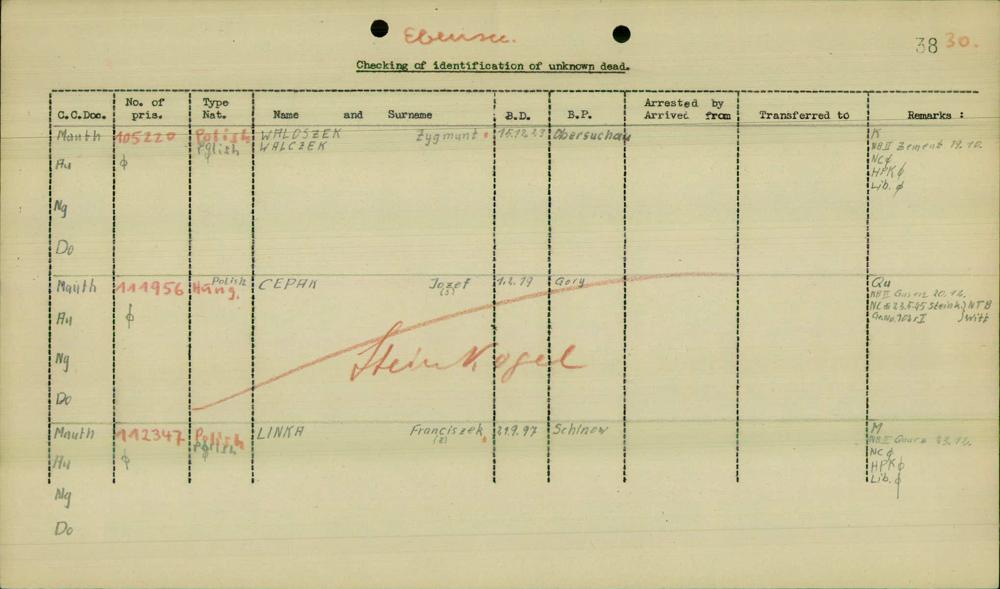 Ebensee.
38 30.
Checking of identification of unknown dead.
C.C.Doc. No. of pris. Type Nat. Name and Surname B.D. B.P. Arrested by Arrived from Transferred to Remarks :
Mauth 105220 Polish WALOSZEK Zygmunt 15.12.23 Obersuchau K
Polish WALCZEK NB II Zement 19.10.
Au ϕ NC ϕ
HPK ϕ
Lib. ϕ
Ng
Do
Mauth 111956 Hung. Polish CEPAK Jozef 1.2.19 Gory Qu
(5) NB II Gusen 20.14.
NC 23.5.45 Steink.) NTB
Au ϕ I ) Witt
Steinkogel
Ng
Do
Mauth 112347 Polish LINKA Franciszek 21.9.97 Schinow M
Polish (2) NB II 23.14.
Au ϕ NC ϕ
HPK ϕ
Lib. ϕ
Ng
Do